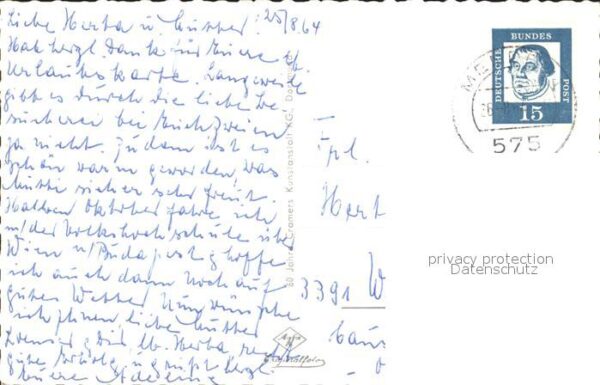 Liebe Herta u. Mutter! 25/8 64
Habt vergl. Dank für Eure lb.
Urlaubskarte. Langeweile
gibt es durch die liebe Be-
sucherei bei Euch Zweien
ja nicht. Zudem ist es
schön warm geworden, was
Mutti sicher sehr freut.
Oktober fahre ich
m/der Volkshochschule über
Wien n/Budapest u. hoffe
ich auch dann noch auf
gutes Wetter. Nun wünsche
ich Ihnen liebe Mutter
u. Dir lb. Herta
gute u. grüßt
Eure
Frl.
Hert
3391 W
DEUTSCHE BUNDES POST
15
575
30 Jahre Cramers Kunstanstalt KG, Dortmund
Agfa
privacy protection
Datenschutz